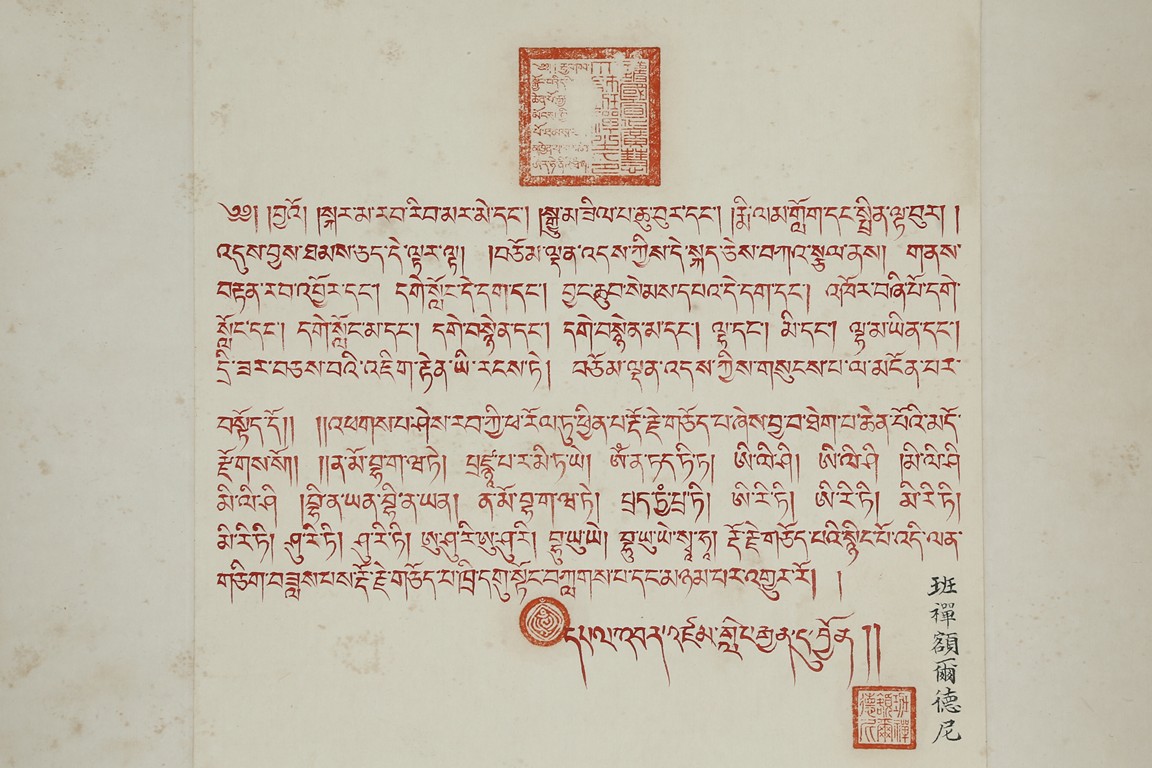 ༄༅། །བྱའོ། །སྐར་མ་རབ་རིབ་མར་མེ་དང་། །སྒྱུ་མ་ཟིལ་པ་ཆུ་བུར་དང་། །རྨི་ལམ་གློག་དང་སྤྲིན་ལྟ་བུར། །
འདུས་བྱས་ཐམས་ཅད་དེ་ལྟར་ལྟ། །བཅོམ་ལྡན་འདས་ཀྱིས་དེ་སྐད་ཅེས་བཀའ་སྩལ་ནས། གནས་
བརྟན་རབ་འབྱོར་དང་། དགེ་སློང་དེ་དག་དང་། བྱང་ཆུབ་སེམས་དཔའ་དེ་དག་དང་། འཁོར་བཞི་པོ་དགེ་
སློང་དང་། དགེ་སློང་མ་དང་། དགེ་བསྙེན་དང་། དགེ་བསྙེན་མ་དང་། ལྷ་དང་། མི་དང་། ལྷ་མ་ཡིན་དང་།
དྲི་ཟར་བཅས་པའི་འཇིག་རྟེན་ཡི་རངས་ཏེ། བཅོམ་ལྡན་འདས་ཀྱིས་གསུངས་པ་ལ་མངོན་པར་
བསྟོད་དོ།། །།འཕགས་པ་ཤེས་རབ་ཀྱི་ཕ་རོལ་ཏུ་ཕྱིན་པ་རྡོ་རྗེ་གཅོད་པ་ཞེས་བྱ་བ་ཐེག་པ་ཆེན་པོའི་མདོ་
རྫོགས་སོ།། །།ན་མོ་བྷ་ག་ཝ་ཏེ། པྲཛྙཱ་པ་ར་མི་ཏ་ཡེ། ཨོཾ་ན་ཏད་ཏི་ཏ། ཨི་ལི་ཤི། ཨི་ལི་ཤི །མི་ལི་ཤི
མི་ལི་ཤི །བྷི་ན་ཡན་བྷི་ན་ཡན། ན་མོ་བྷ་ག་ཝ་ཏེ། པྲད་ཏྱཾ་པྲ་ཏི། ཨི་རི་ཏི། ཨི་རི་ཏི། མི་རི་ཏི།
མི་རི་ཏི། ཤུ་རི་ཏི། ཤུ་རི་ཏི། ཨུ་ཤུ་རི་ཨུ་ཤུ་རི། བྷུ་ཡུ་ཡེ། བྷུ་ཡུ་ཡེ་སྭཱ་ཧཱ། རྡོ་རྗེ་གཅོད་པའི་སྙིང་པོ་འདི་ལན་
གཅིག་བཟླས་པས་རྡོ་རྗེ་གཅོད་པ་ཁྲི་དགུ་སྟོང་བཀླགས་པ་དང་མཉམ་པར་འགྱུར་རོ། །
དཔལ་འབར་འཛམ་གླིང་རྒྱན་དུ་བྱོན །།
班禪額爾德尼
班禪額爾德尼